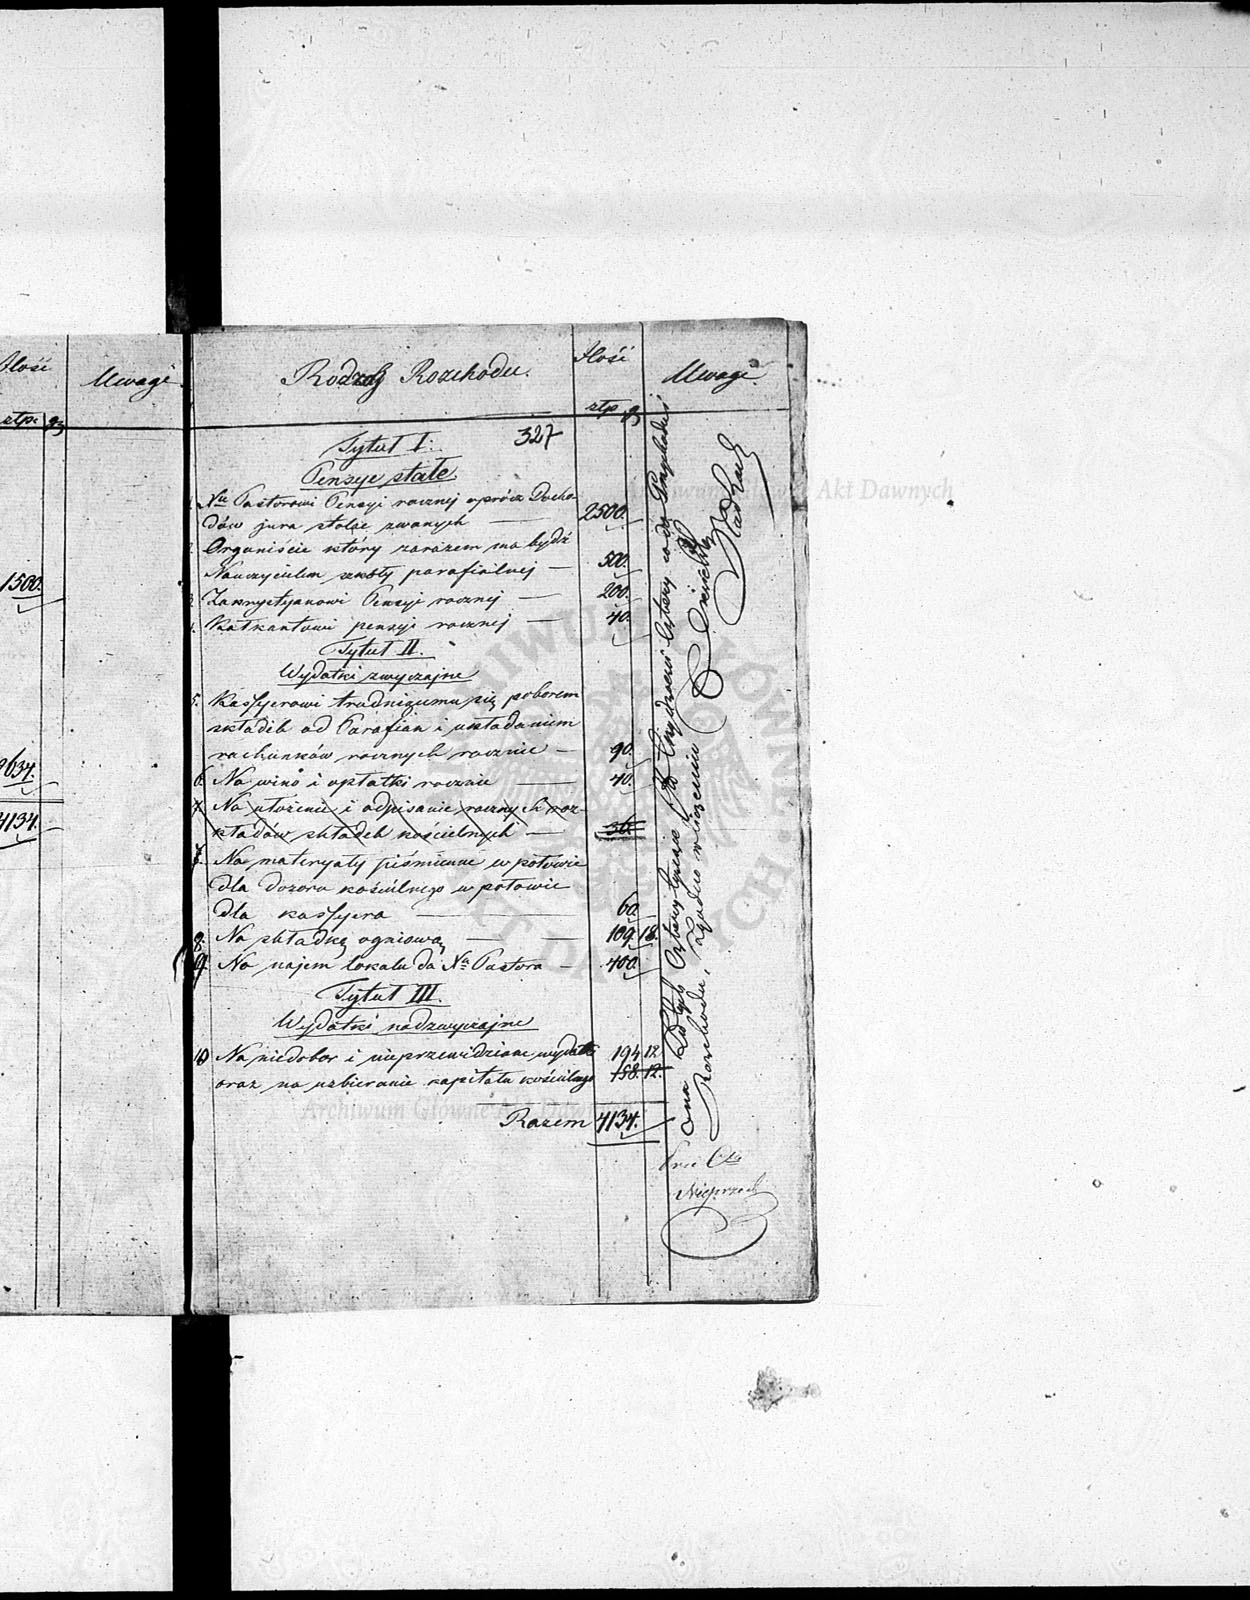 Ilość
Uwagi
złp. gr
1500.
2634.
4134.
Rodzaj Rozchodu.
Ilość
Uwagi
złp gr
327
Tytuł I.
Pensye stałe
1. Nu Pastorowi Pensyi rocznej oprócz Docho-
dów jura stolae zwanych — 2500.
2. Organiście który zarazem ma bydź
Nauczycielem szkoły parafialnej — 500.
3. Zakrystyanowi Pensyi rocznej — 200.
4. Kalkantowi pensyi rocznej — 40.
Tytuł II.
Wydatki zwyczajne
5. Kassyerowi trudniącemu się poborem
składek od Parafian i układaniem
rachunków rocznych rocznie — 90.
6. Na wino i opłatki rocznie — 40.
7. Na ułożenie i odpisanie rocznych roz-
kładów składek kościelnych — 36.
7. Na materyały piśmienne w połowie
dla dozoru kościelnego w połowie
dla kassyera — 60.
8. Na składkę ogniową — 109. 18.
9. Na najem lokalu da Na Pastora — 400.
Tytuł III.
Wydatki nadzwyczajne
10 Na niedobor i nieprzewidziane wydatki 194 12
oraz na uzbieranie kapitału kościelnego 158. 12.
Razem 4134.
Cztery tysiące Sto Trzydzieści Cztery co do Przychodu i
Rozchodu, Zgodno w liczeniu
Radca
Archiwum Główne Akt Dawnych
Archiwum Główne Akt Dawnych